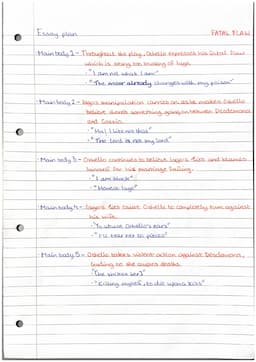 Essay plan FATAL FLAW
Main body 1 - Throughout the play, Othello expresses his fatal flaw
which is being too trusting of Iago.
· "I am not what I am"
· "The moor already changes with my poison"
Main body 2 - Iago's manipulation carries on as he makes Othello
believe there's something going on between Desdemona
and Cassio.
· "Ha! I like not that"
· "The lord is not my lord"
Main body 3 - Othello continues to believe Iago's lies and blames
himself for his marriage failing.
· "I am black"
· "Honest Iago"
Main body 4 - Iago's lies cause Othello to completely turn against
his wife.
· "To abuse Othello's ears"
· "I'll tear her to pieces"
Main body 5 - Othello takes violent action against Desdemona,
leading to the couple's deaths.
· "[he strikes her]"
· "Killing myself, to die upon a kiss"